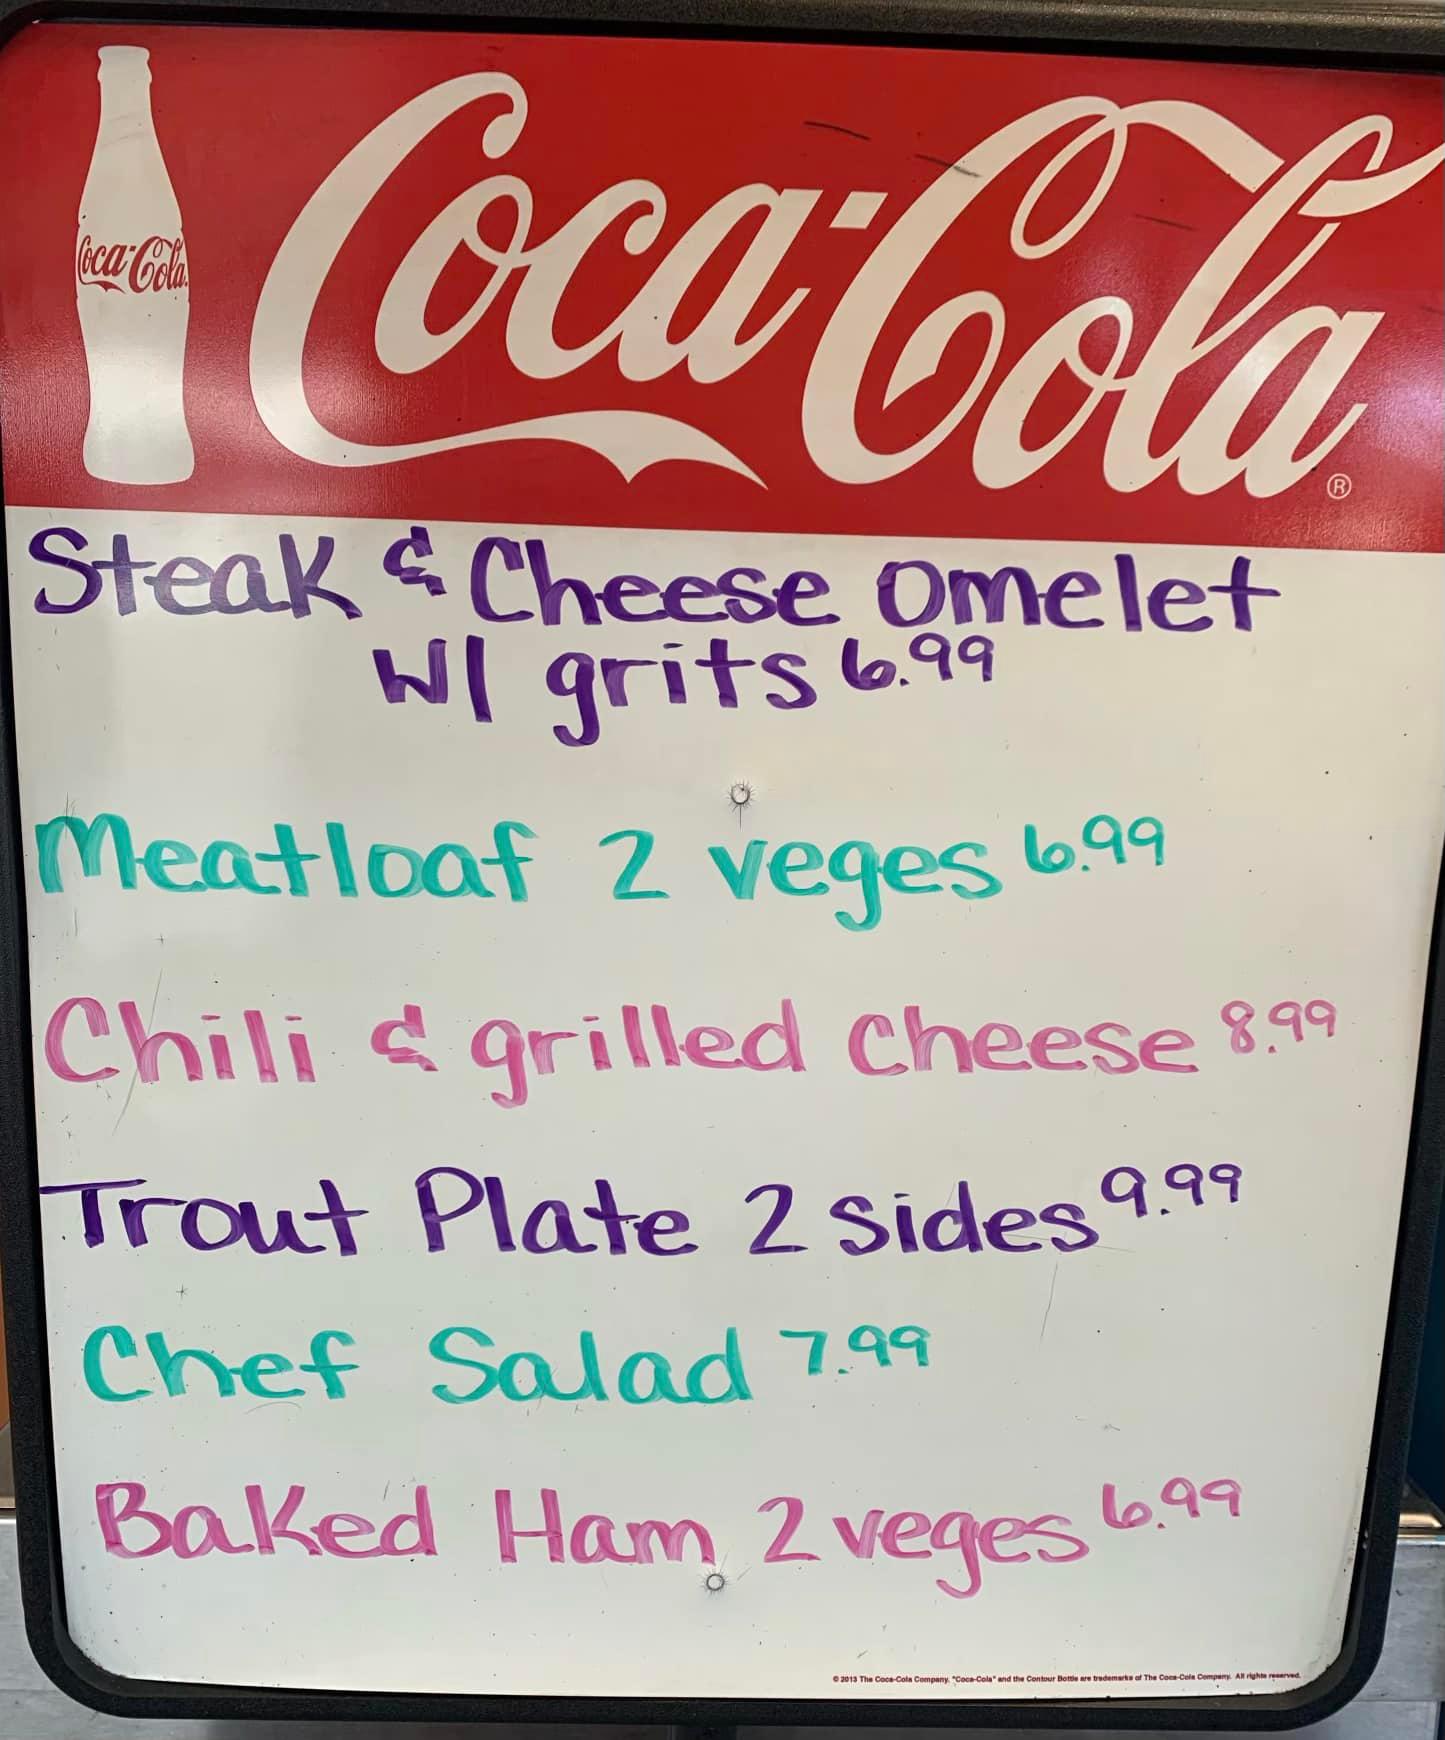 Coca-Cola
Coca-Cola®
Steak & Cheese Omelet
W/ grits 6.99
Meatloaf 2 veges 6.99
Chili & grilled cheese 8.99
Trout Plate 2 sides 9.99
Chef Salad 7.99
Baked Ham 2 veges 6.99
© 2013 The Coca-Cola Company. "Coca-Cola" and the Contour Bottle are trademarks of The Coca-Cola Company. All rights reserved.